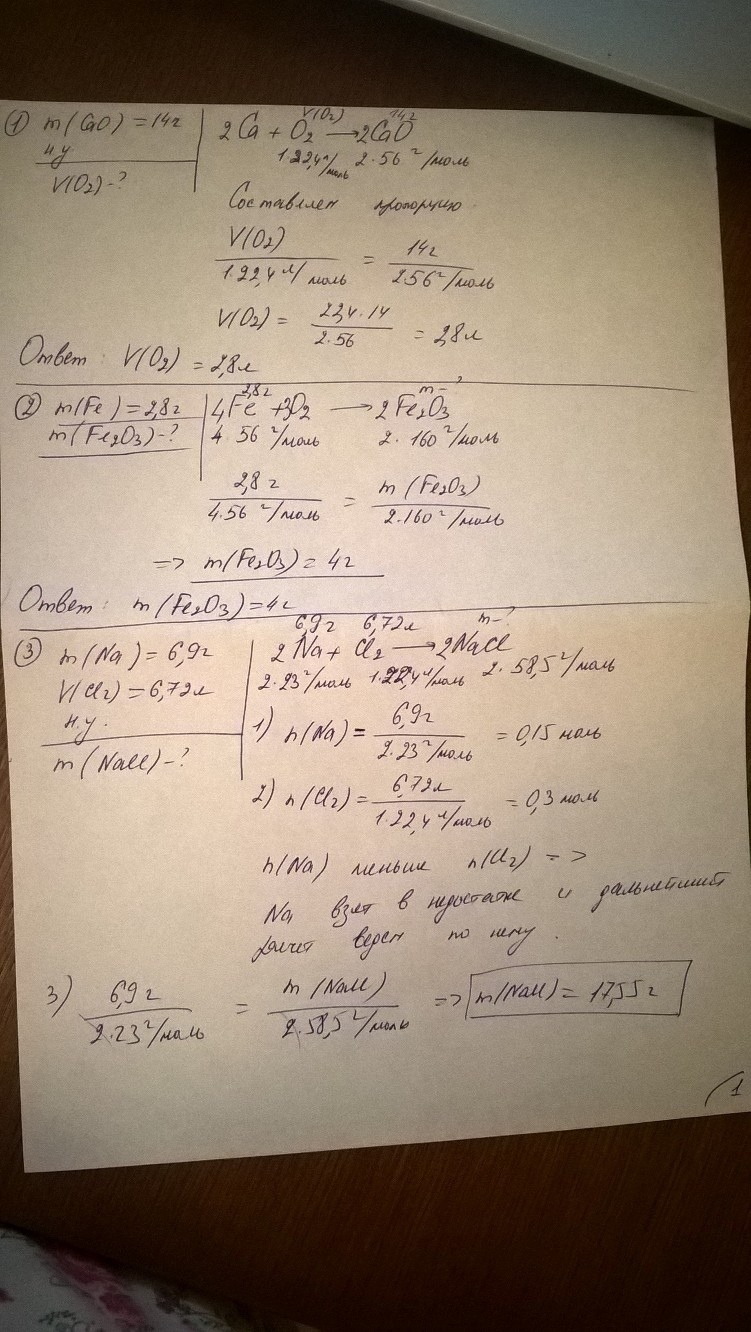 ① m(CaO) = 14г
н.у.
V(O₂)-?
V(O₂) 14г
2Ca + O₂ → 2CaO
1·22,4 л/моль 2·56 г/моль
Составляем пропорцию
V(O₂)/1·22,4 л/моль = 14г/2·56 г/моль
V(O₂) = 22,4·14/2·56 = 2,8л
Ответ: V(O₂) = 2,8л
② m(Fe) = 2,8г
m(Fe₂O₃)-?
2,8г m-?
4Fe + 3O₂ → 2Fe₂O₃
4·56 г/моль 2·160 г/моль
2,8г/4·56 г/моль = m(Fe₂O₃)/2·160 г/моль
=> m(Fe₂O₃) = 4г
Ответ: m(Fe₂O₃) = 4г
③ m(Na) = 6,9г
V(Cl₂) = 6,72л
н.у.
m(NaCl)-?
6,9г 6,72л m-?
2Na + Cl₂ → 2NaCl
2·23 г/моль 1·22,4 л/моль 2·58,5 г/моль
1) n(Na) = 6,9г/2·23 г/моль = 0,15 моль
2) n(Cl₂) = 6,72л/1·22,4 л/моль = 0,3 моль
n(Na) меньше n(Cl₂) =>
Na взят в недостатке и дальнейший
расчет ведем по нему.
3) 6,9г/2·23 г/моль = m(NaCl)/2·58,5 г/моль => m(NaCl) = 17,55г
1